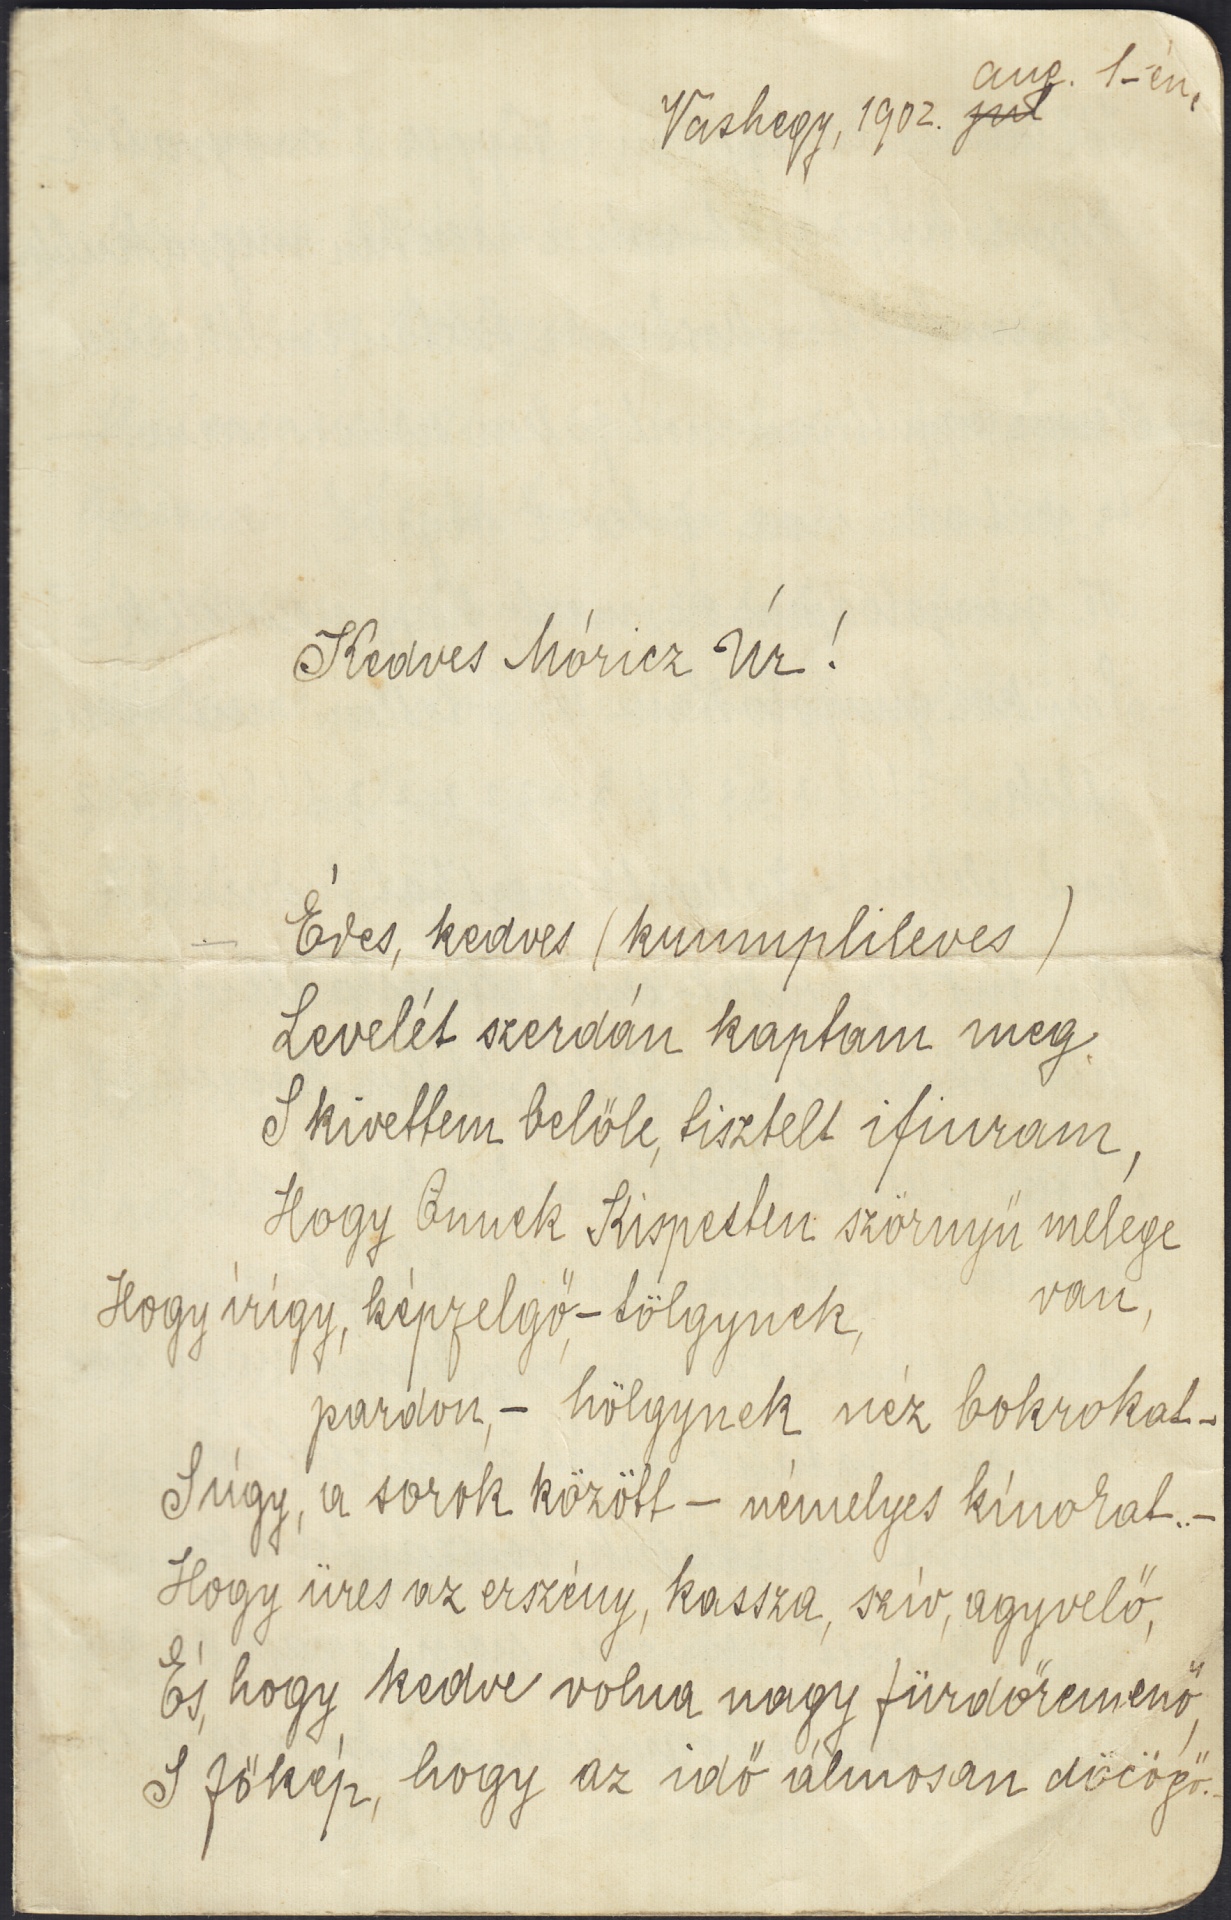 aug. 1-én,
Vashegy, 1902. jul
Kedves Móricz Úr!
Édes, kedves (krumplileves)
Levelét szerdán kaptam meg.
S kivettem belőle, tisztelt ifiuram,
Hogy Önnek Kispesten szörnyű melege
van,
Hogy írígy, képzelgő,- tölgynek,
pardon,- hölgynek néz bokrokat-
S úgy, a sorok között - némelyes kínokat.-
Hogy üres az erszény, kassza, szív, agyvelő,
És, hogy kedve volna nagy fürdőremenő,
S főkép, hogy az idő álmosan döcögő.-